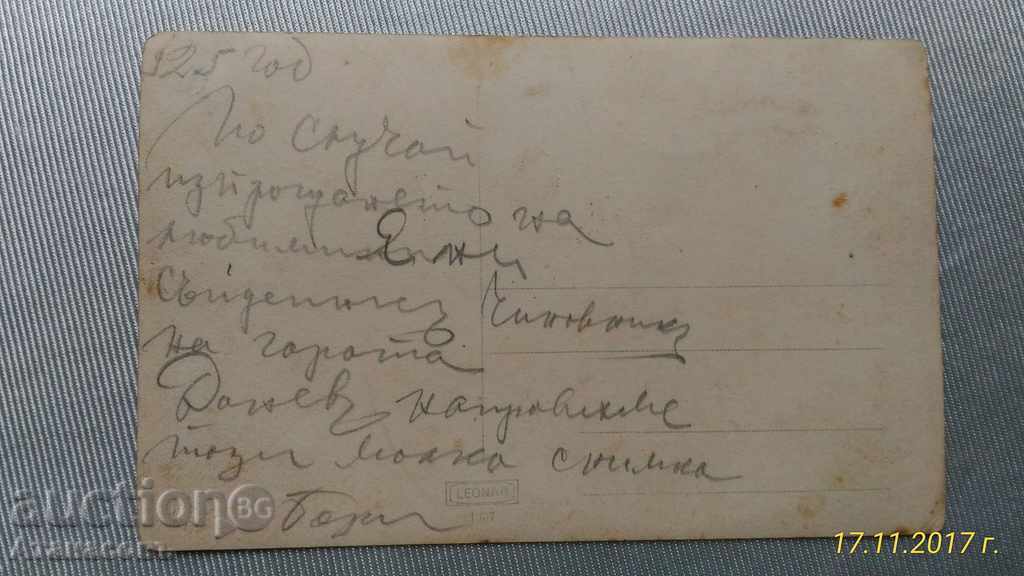 925 год
По случай
изпрощането на
любими
Съйденикъ Чиновникъ
на гарата
Донев направихме
тази малка снимка
LEONAR
auction BG
17.11.2017 г.